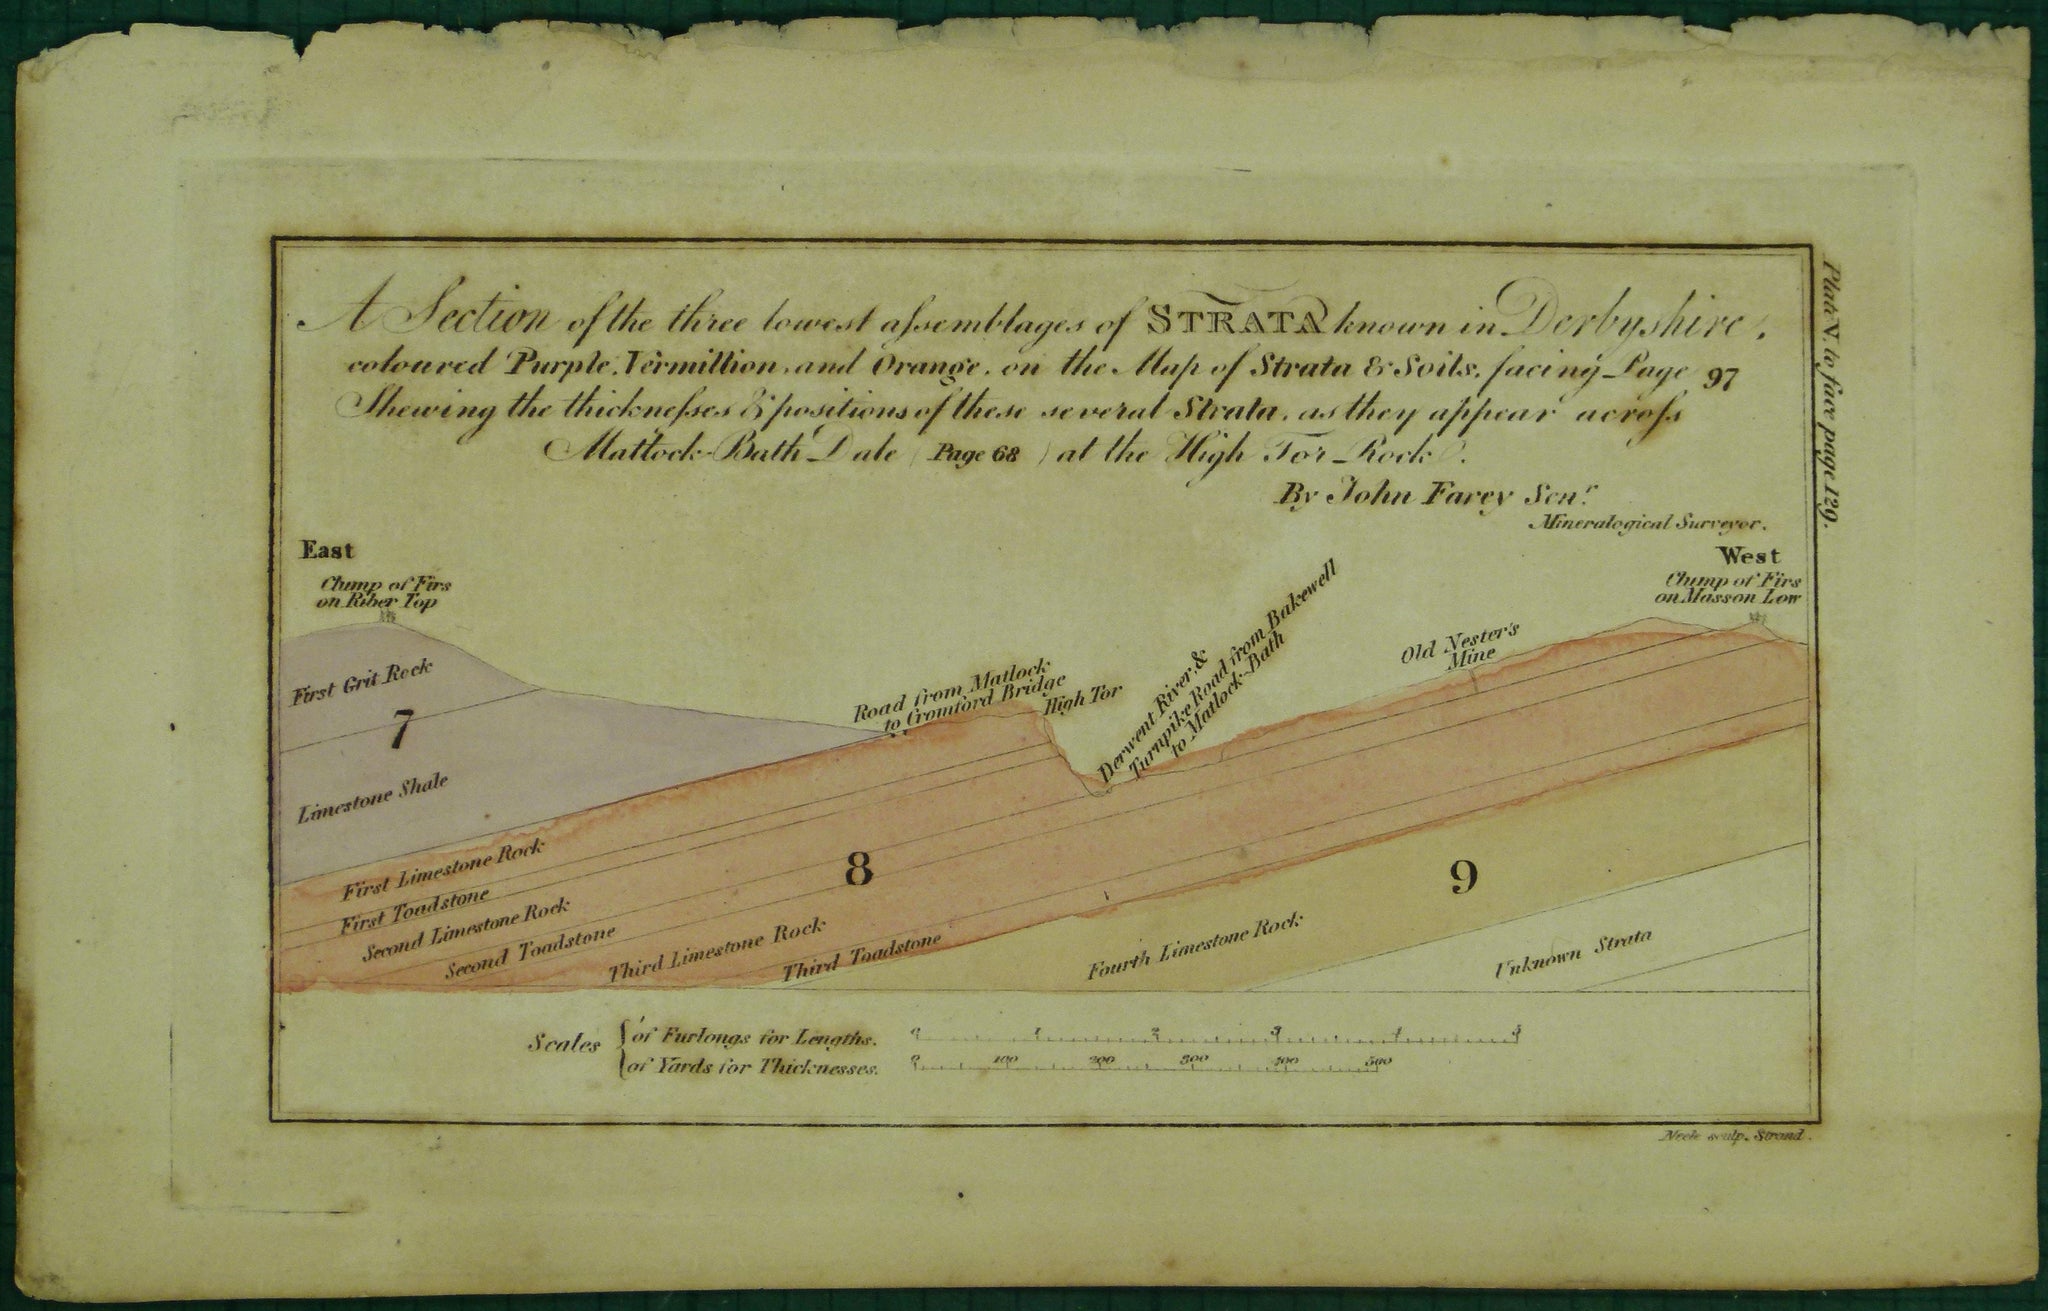 A Section of the three lowest aſsemblages of STRATA known in Derbyshire,
coloured Purple, Vermillion, and Orange, on the Map of Strata & Soils, facing Page 97
Shewing the thickneſses & positions of these several Strata, as they appear acroſs
Matlock-Bath Dale (Page 68) at the High Tor Rock.
By John Farey Senr.
Mineralogical Surveyor.
Plate V. to face page 129.
East
West
Clump of Firs
on Riber Top
Clump of Firs
on Masson Low
Old Nester's
Mine
Derwent River, &
Turnpike Road from Bakewell
to Matlock-Bath
Road from Matlock
to Cromford Bridge
High Tor
First Grit Rock
7
Limestone Shale
First Limestone Rock
First Toadstone
Second Limestone Rock
Second Toadstone
8
Third Limestone Rock
Third Toadstone
9
Fourth Limestone Rock
Unknown Strata
Scales { of Furlongs for Lengths. 0 1 2 3 4 5
of Yards for Thicknesses. 0 100 200 300 400 500
Neele sculp. Strand.